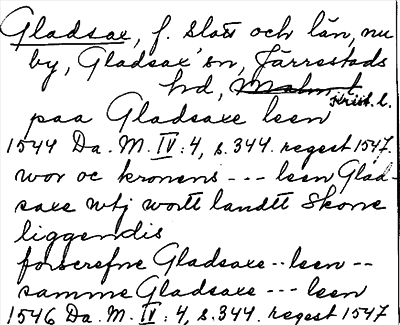 Gladsax, f. slott och län, nu
by, Gladsax sn, Järrestads
hd, Malm. l.
Krist. l.
paa Gladsaxe leen
1544 Da. M. IV: 4, s. 344. regest 1547.
wor oc kronens --- leen Glad-
saxe wtj wortt landtt Skone
liggendis
forscrefne Gladsaxe -- leen --
samme Gladsaxe --- leen
1546 Da. M. IV: 4, s. 344. regest 1547